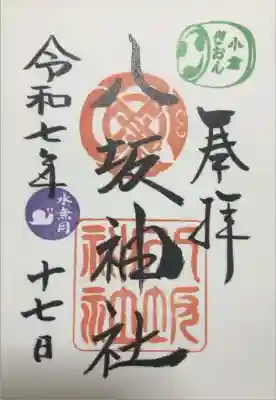 奉拝
小倉
ぎおん
八坂神社
八坂
神社
令和七年
水無月
十七日